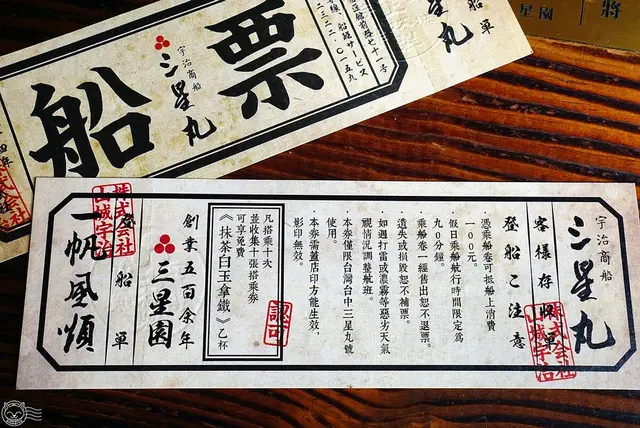 船票
宇治商船
三星丸
船單
星丸
星園
將
宇治商船
三星丸
客樣存單
登船ご注意
・憑乘船卷可抵船上消費
一００元。
・假日乘船航行時間限定為
九０分鐘。
・乘船卷一經售出恕不退票。
・遺失或損毀恕不補票。
・如遇打雷或濃霧等惡劣天氣
視情況調整航班。
・本券僅限台灣台中三星丸號
使用。
・本券需蓋店印方能生效,
影印無效。
凡搭乘十次
並收集十張搭乘券
可享免費
《抹茶白玉拿鐵》乙杯
認可
創業五百余年
三星園
登船單
株式会社
山城宇治
一帆風順
株式会社
山城宇治